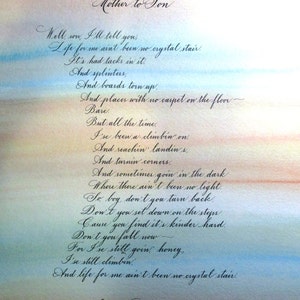 Mother to Son
Well, son, I'll tell you;
Life for me ain't been no crystal stair.
It's had tacks in it,
And splinters,
And boards torn up,
And places with no carpet on the floor—
Bare.
But all the time,
I'se been a climbin' on,
And reachin' landin's,
And turnin' corners,
And sometimes goin' in the dark
Where there ain't been no light.
So boy, don't you turn back.
Don't you set down on the steps
'Cause you find it's kinder hard.
Don't you fall now—
For I'se still goin', honey,
I'se still climbin',
And life for me ain't been no crystal stair.